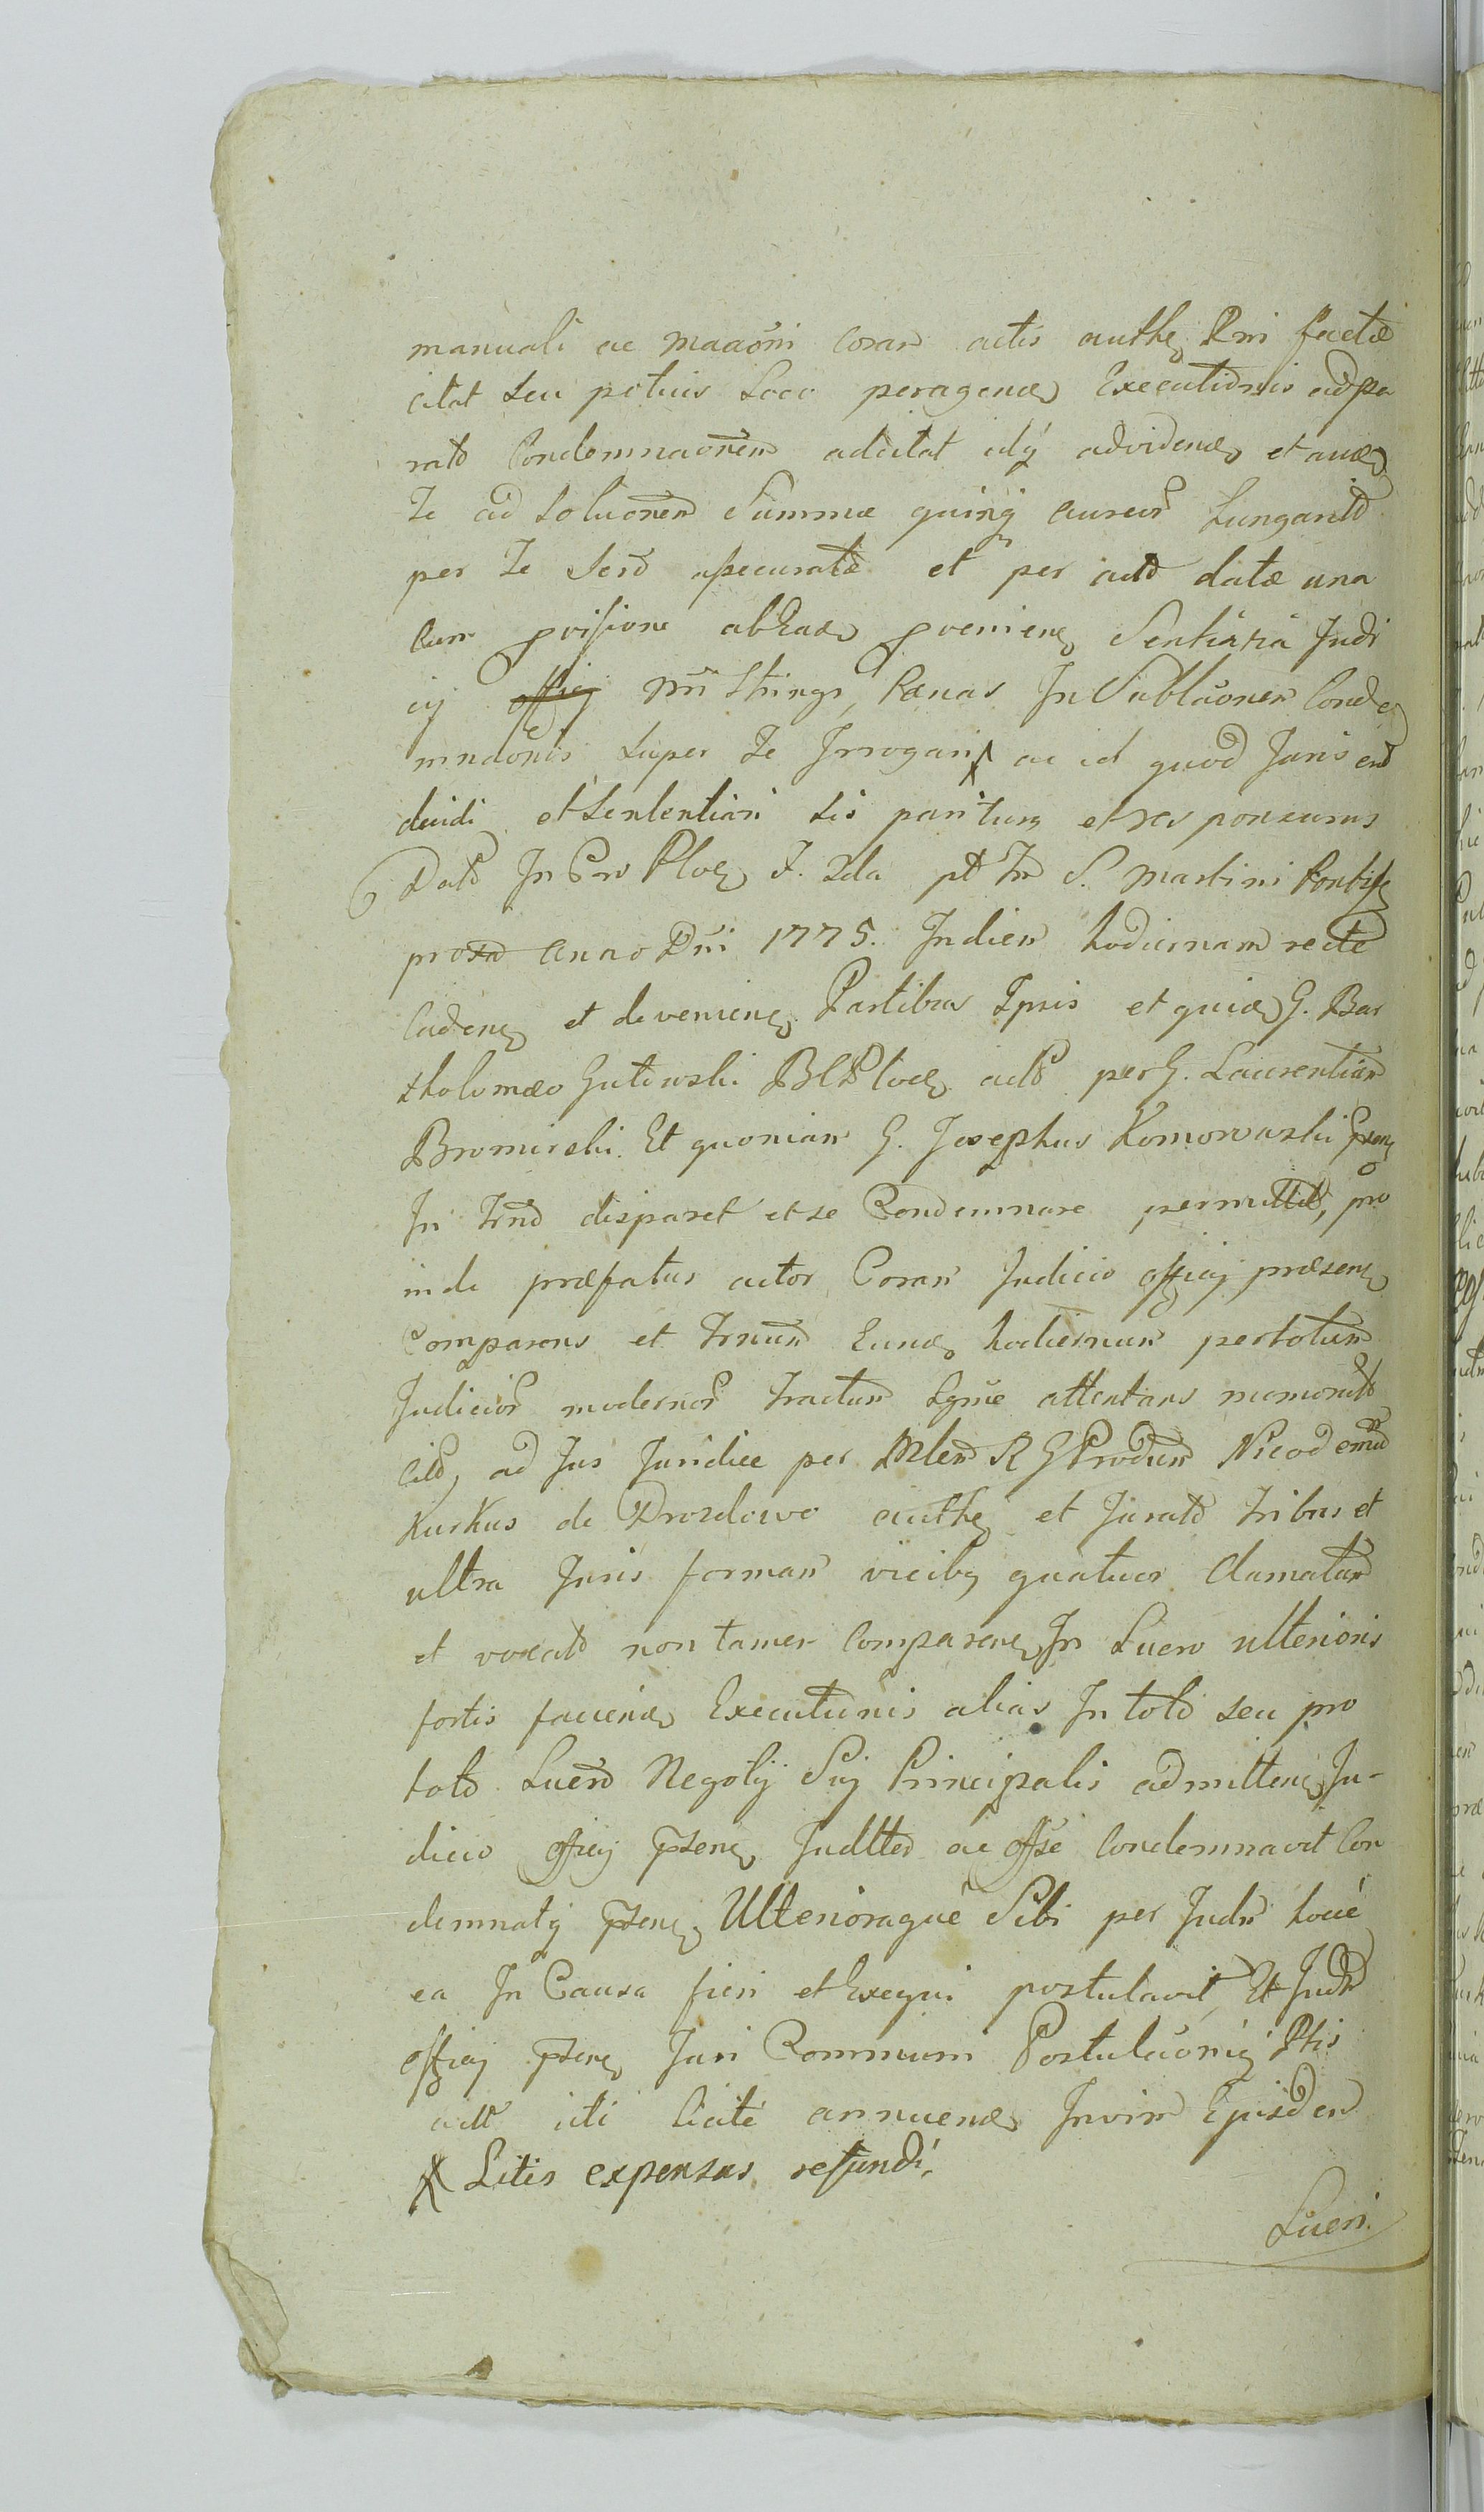 manuali ac maaõni coram actis authẽ Rni factæ
citat seu potius Loco peragenꝫ Executionis adpa
ratõ Condemnaõnem adcitat idq́ advidenꝫ et auẽ
Te ad soluõnem Summæ quinq́ aureoꝝ hungariũ
per Te seră assecuratæ et per actõ datæ una
cum pvisione abhaꝫ pvenienꝫ Sententia Judi
cij nri Strings, Pænas In Sublaõnem Conde
mnaõnis super Te Irrogari ⁁ ac id quod Juris erit
decidi et Sententiari sis pariturꝫ et responsurus
Datõ In Cro Ploꝫ F. 2da pt Fm S. Martini Pontifꝫ
proxa Anno Dni 1775. In diem hodiernam recte
Cadenꝫ et devenienꝫ Partibus Ipsis et quidꝫ G. Bar
tholomæo Gutowski BCPlocꝫ actõ per G. Laurentium
Bromirski. Et quoniam G. Josephus Komorowski
In Trnõ disparet et se Condemnare permittit, pro
inde præfatus actor Coram Judicio officij præsenꝫ
Comparens et Trnum Eundꝫ hodiernum per totum
Judicioꝝ modernoꝝ tractum Lgme attentans memoratõ
citõ, ad Jus Juridice per Mlem R G Produm Nicodemũ
Kurkus de Drozdowo authẽ et Juratõ tribus et
ultra Juris formam vicibꝫ quatuor Clamatum
et vocatõ non tamen Comparenꝫ In Lucro ulterioris
fortis faciendꝫ Executionis alias In totõ seu pro
totõ Lucrõ Negotij Sui Principalis admittenꝫ Ju-
dicio officij p̃senꝫ Judlter ac offse Condemnavit Con
demnatq́ p̃senꝫ Ulterioraque Sibi per Judm hocce
ea In Causa fieri et Exequi postulavit, Et Judm
officij p̃senꝫ Juri Communi Postulaõniq́ Ptis
actõ uti licitè annuendꝫ Invim Ejusdem
⁁ Litis expensas refundi,
Lucri.